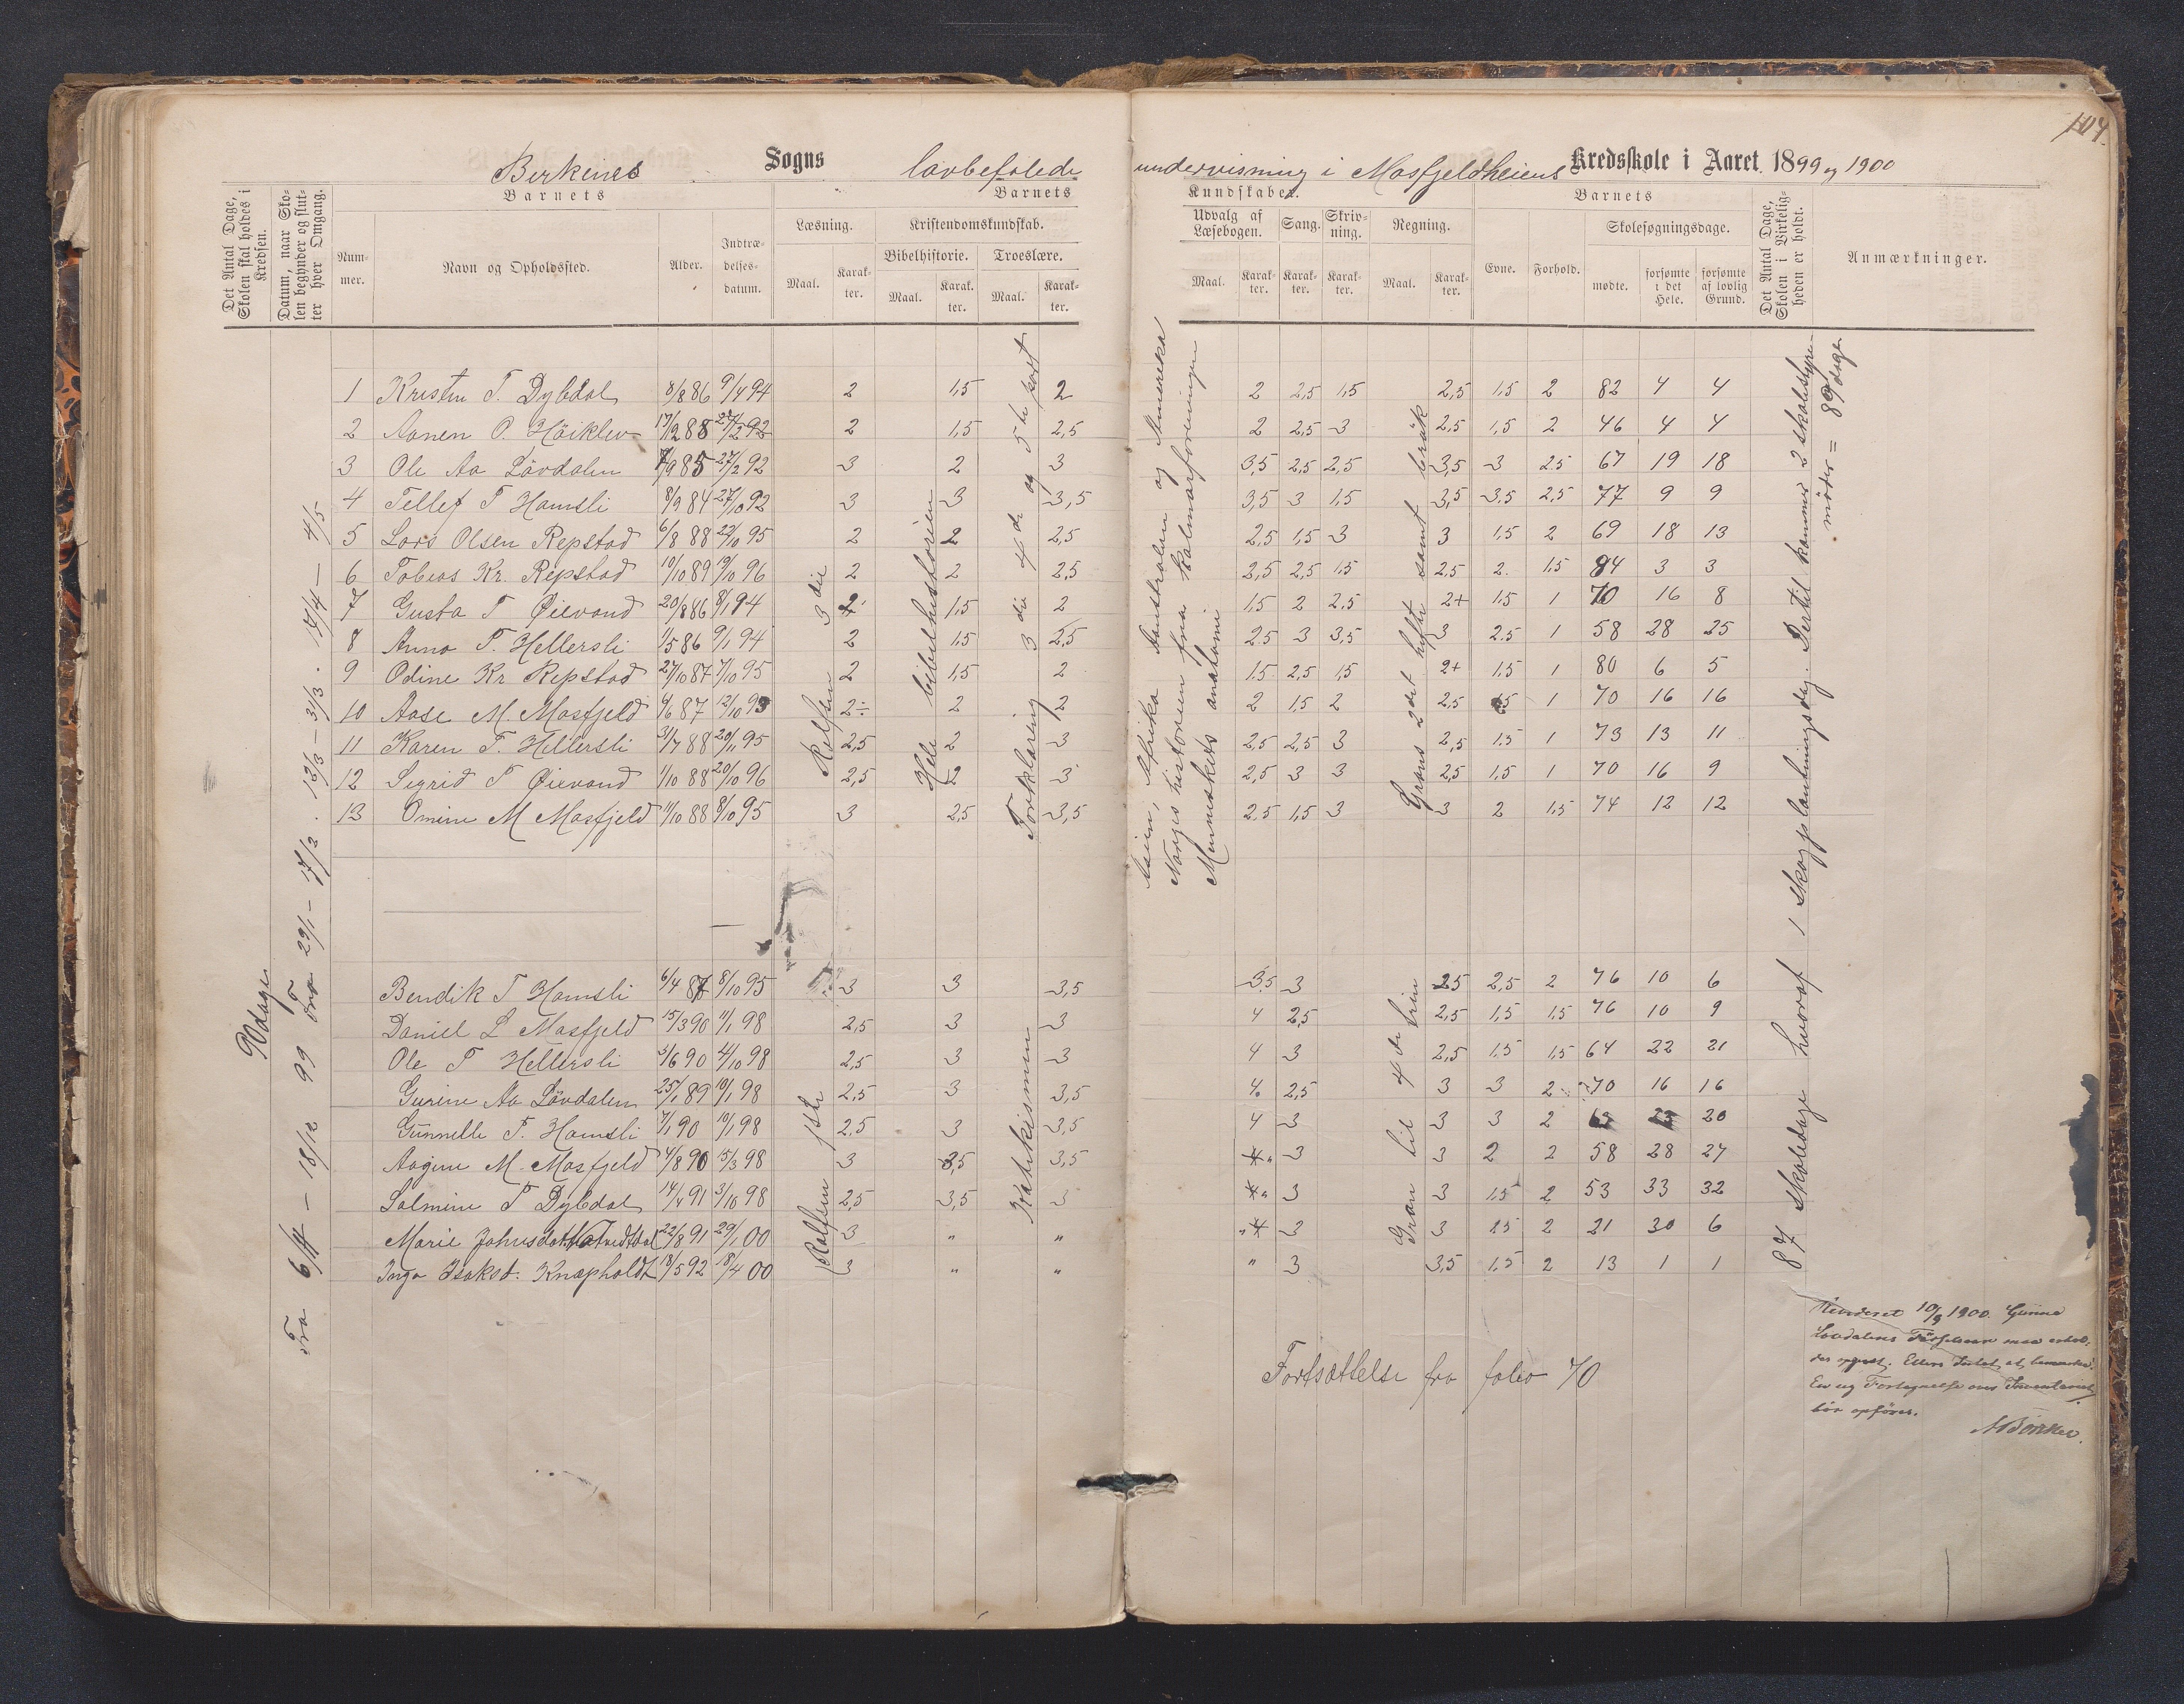 104.
Birkenes Sogns lovbefalede undervisning i Mosfjeldheiens Kredsskole i Aaret 1899 og 1900
Det Antal Dage, Skolen skal holdes i Kredsen.
Datum, naar Skolen begynder og slutter hver Omgang.
Barnets
Nummer.
Navn og Opholdssted.
Alder.
Indtrædelsesdatum.
Barnets Kundskaber.
Læsning.
Maal.
Karakter.
Kristendomskundskab.
Bibelhistorie.
Maal.
Karakter.
Troeslære.
Maal.
Karakter.
Udvalg af Læsebogen.
Maal.
Karakter.
Sang.
Karakter.
Skrivning.
Karakter.
Regning.
Maal.
Karakter.
Barnets
Evne.
Forhold.
Skolesøgningsdage.
mødte.
forsømte i det Hele.
forsømte af lovlig Grund.
Det Antal Dage, Skolen i Virkeligheden er holdt.
Anmærkninger.
90 dage
Fra 6/11 – 18/12 99 Fra 29/1 – 17/2 . 12/3 – 31/3 . 17/4 – 4/5
Rolfsen 3die
Hele bibelhistorien
Forklaring 3die 4de og 5te part
Asien, Afrika Australien og Amerika
Norges historien fra Kalmarforeningen
Menneskets anatomi
Grans 2det hefte samt brøk
87 skoledage hvoraf 1 skogplantningsdag. Dertil kommer 2 skolestyremøter = 89 dage
1 Kristen T. Dybdal 8/8 86 9/4 94 2 1,5 2 2 2,5 1,5 2,5 1,5 2 82 4 4
2 Aanen O. Høiklev 17/12 88 27/2 92 2 1,5 2,5 2 2,5 3 2,5 1,5 2 46 4 4
3 Ole Aa Løvdalen 7/9 85 27/2 92 3 2 3 3,5 2,5 2,5 3,5 3 2,5 67 19 18
4 Tellef T Hamsli 8/9 84 27/10 92 3 3 3,5 3,5 3 1,5 3,5 3,5 2,5 77 9 9
5 Lars Olsen Repstad 6/8 88 22/10 95 2 2 2,5 2,5 1,5 3 3 1,5 2 69 18 13
6 Tobias Kr. Repstad 10/10 89 19/10 96 2 2 2,5 2,5 2,5 1,5 2,5 2. 1,5 84 3 3
7 Gusta T Øievand 20/8 86 8/1 94 2 1,5 2 1,5 2 2,5 2+ 1,5 1 70 16 8
8 Anna T. Hellersli 1/5 86 9/1 94 2 1,5 2,5 2,5 3 3,5 3 2,5 1 58 28 25
9 Odine Kr Repstad 27/10 87 7/10 95 2 1,5 2 1,5 2,5 1,5 2+ 1,5 1 80 6 5
10 Aase M. Mosfjeld 4/6 87 12/10 93 2÷ 2 2 2 1,5 2 2,5 1,5 1 70 16 16
11 Karen T. Hellersli 3/7 88 20/11 95 2,5 2 3 2,5 2,5 3 2,5 1,5 1 73 13 11
12 Sigrid T Øievand 1/10 88 20/10 96 2,5 2 3 2,5 3 3 2,5 1,5 1 70 16 9
13 Omine M Mosfjeld 11/10 88 8/10 95 3 2,5 3,5 2,5 1,5 3 3 2 1,5 74 12 12
Rolfsen 1ste
Katekismen
Gran til 4de trin
Bendik T Hamsli 6/4 87 8/10 95 3 3 3,5 3,5 3 2,5 2,5 2 76 10 6
Daniel L Mosfjeld 15/3 90 11/1 98 2,5 3 3 4 2,5 2,5 1,5 1,5 76 10 9
Ole T Hellersli 3/6 90 4/10 98 2,5 3 3 4 3 2,5 1,5 1,5 64 22 21
Gurine Aa Løvdalen 25/1 89 10/1 98 2,5 3 3,5 4. 2,5 3 3 2 70 16 16
Gunnelle T. Hamsli 7/1 90 10/1 98 2,5 3 3,5 4 3 3 3 2 20
Aagine M. Mosfjeld 4/8 90 15/3 98 3 3,5 3,5 3 3 2 2 58 28 27
Salmine T Dybdal 14/4 91 3/10 98 2,5 3,5 3 3 3 1,5 2 53 33 32
Marie Johnsdat. 22/8 91 29/1 00 3 " " 3 3 2,5 2 21 30 6
Inga Isaksd. Knapholdt 18/5 92 18/4 00 3 " " " 3 3,5 1,5 2 13 1 1
Fortsættelse fra folio 70
Revideret 10/9 1900. Gurine
Løvdalens Fødselsaar maa
Ellers Intet at bemærke.
En ny Fortegnelse over Inventariet
bør opføres.